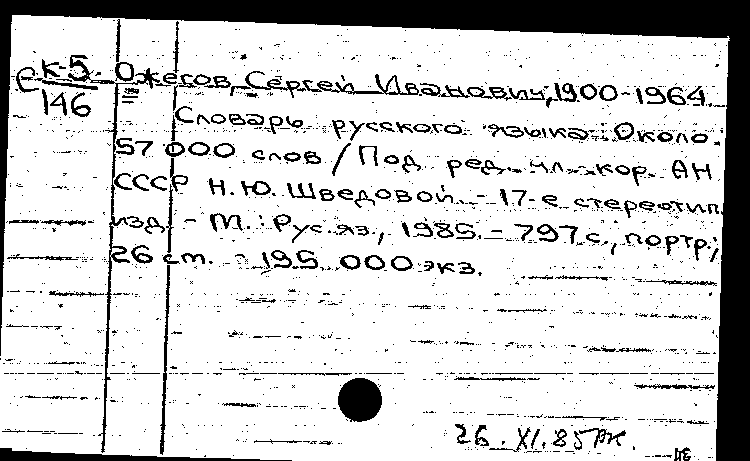 С к-5. Ожегов, Сергей Иванович, 1900-1964
146
Словарь русского языка: Около
57 000 слов / Под ред. чл.-кор. АН
СССР Н.Ю. Шведовой. - 17-е стереотип.
изд. - М.: Рус. яз., 1985. - 797 с., портр.;
26 cm. - 195 000 экз.
26. XI. 85